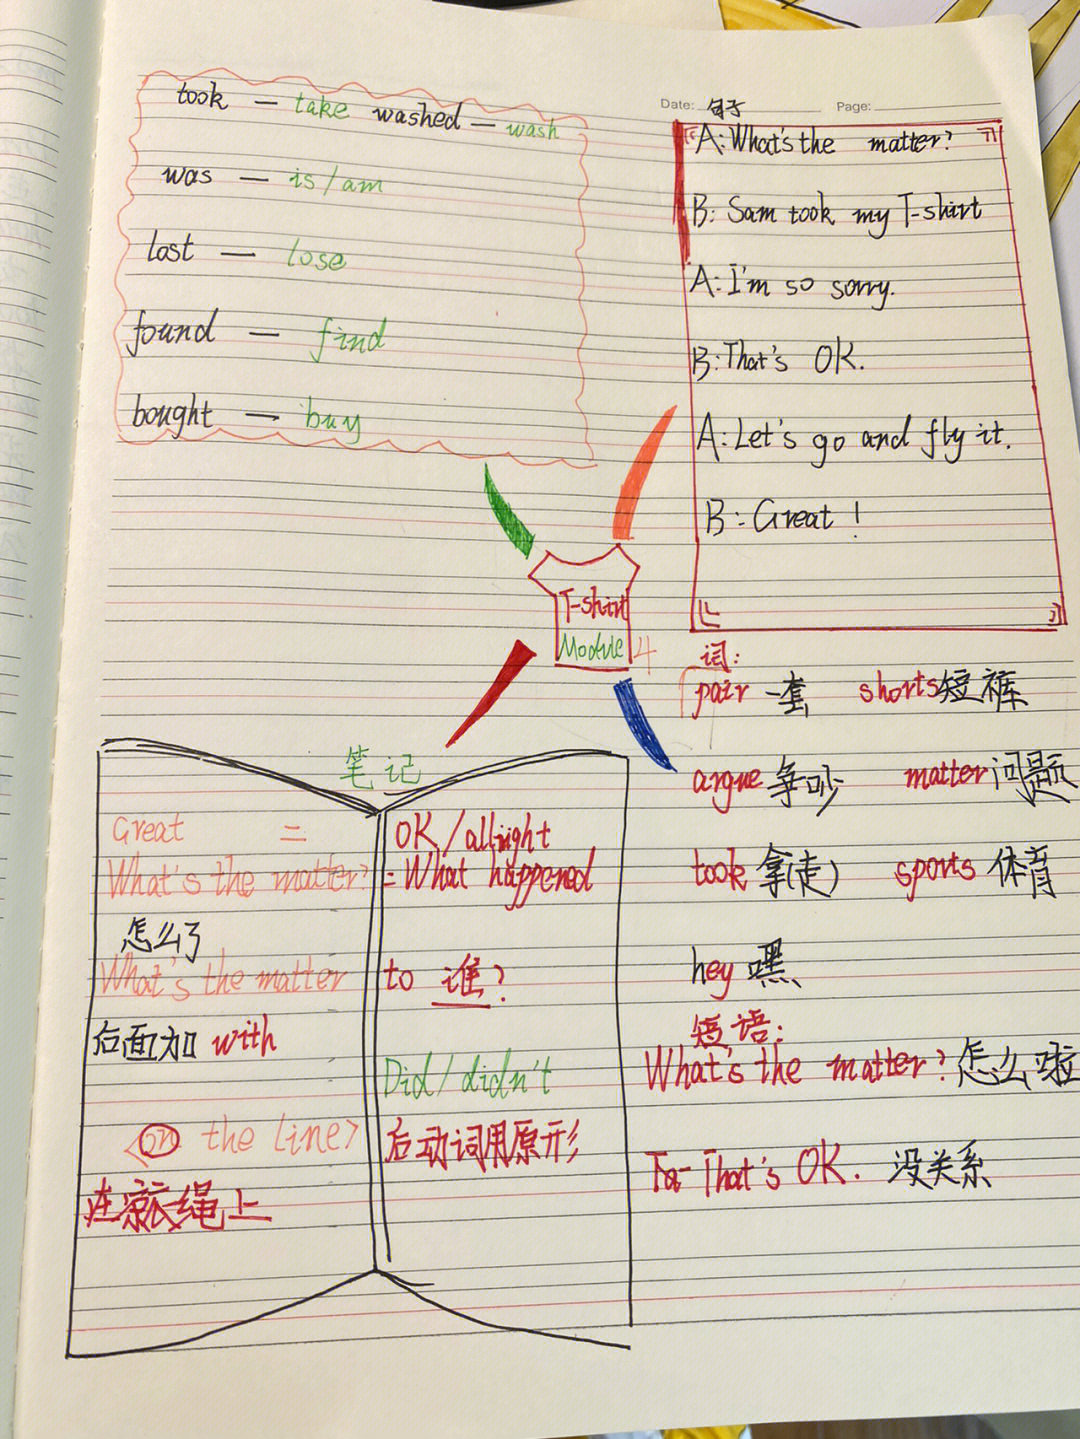 took — take washed — wash
was — is/am
lost — lose
found — find
bought — buy
Date: 句子 Page:
A: What's the matter?
B: Sam took my T-shirt
A: I'm so sorry.
B: That's OK.
A: Let's go and fly it.
B: Great!
T-shirt
Module 4
词:
pair 一套 shorts 短裤
argue 争吵 matter 问题
took 拿(走) sports 体育
hey 嘿
短语:
What's the matter? 怎么啦
That's OK. 没关系
笔记
Great = OK/allright
What's the matter? = What happened
怎么了
What's the matter to 谁?
后面加 with
Did/didn't
后动词用原形
<on the line>
在 绳上